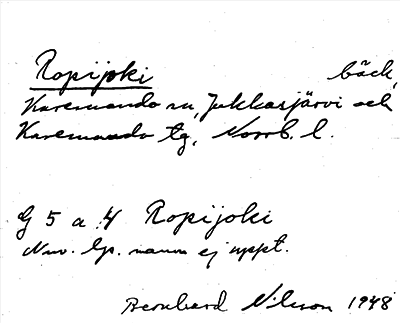 Ropijoki bäck,
Karesuando sn, Jukkasjärvi och
Karesuando tg, Norrb. l.
G 5 a 4 Ropijoki
Nuv. lp. namn ej uppt.
Bernhard Nilsson 1948